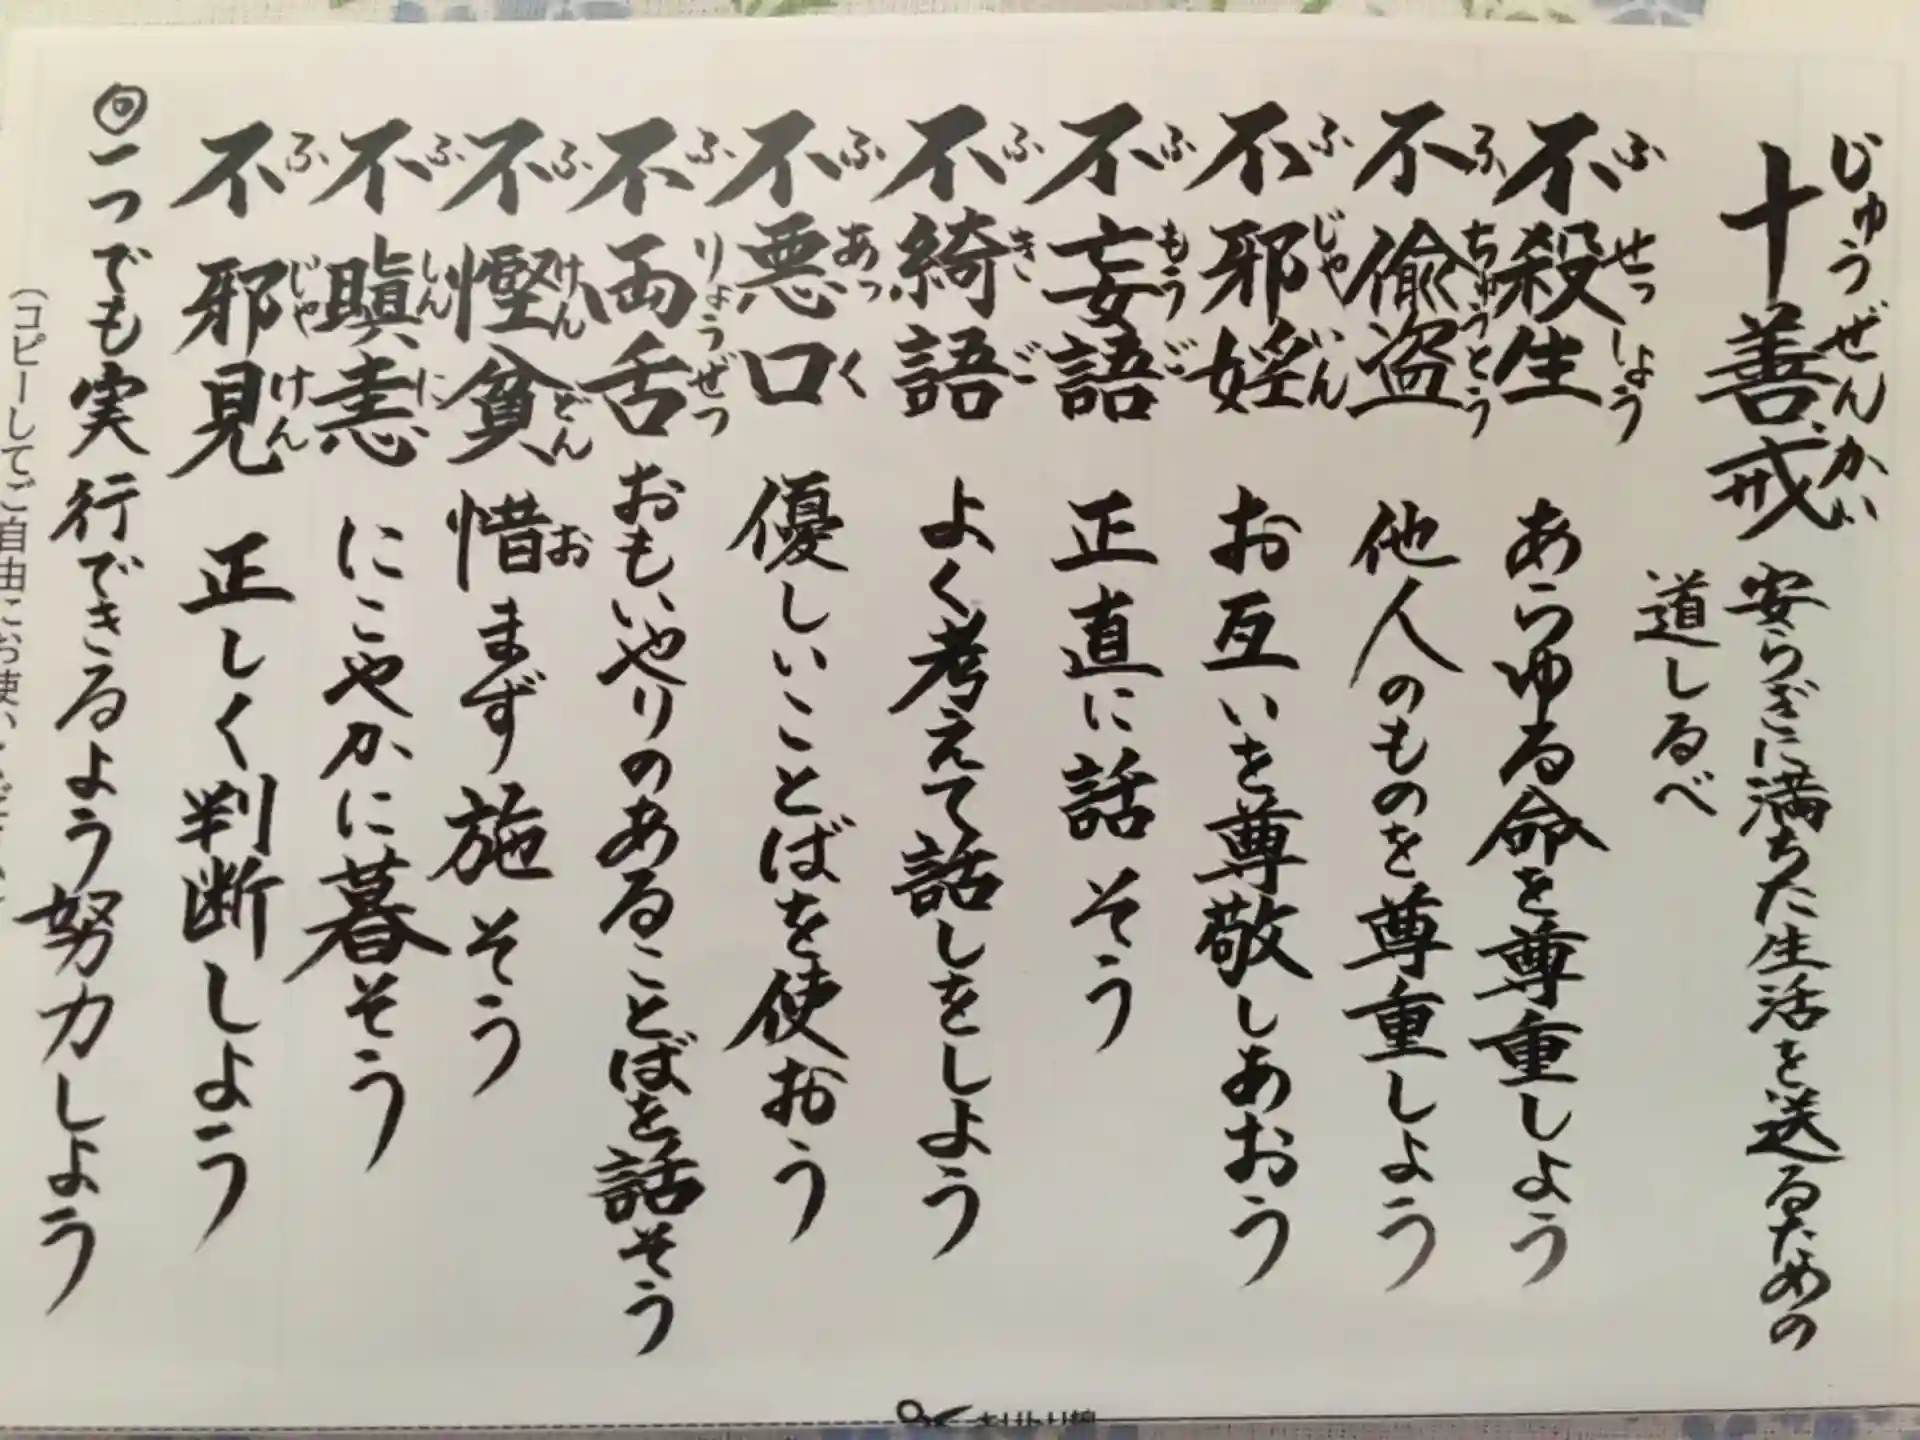 十善戒 安らぎに満ちた生活を送るための
じゅうぜんかい
道しるべ
不殺生 あらゆる命を尊重しよう
ふせっしょう
不偸盗 他人のものを尊重しよう
ふちゅうとう
不邪婬 お互いを尊敬しあおう
ふじゃいん
不妄語 正直に話そう
ふもうご
不綺語 よく考えて話しをしよう
ふきご
不悪口 優しいことばを使おう
ふあっく
不両舌 おもいやりのあることばを話そう
ふりょうぜつ
不慳貪 惜まず施そう
ふけんどん お
不瞋恚 にこやかに暮そう
ふしんに
不邪見 正しく判断しよう
ふじゃけん
一つでも実行できるよう努力しよう
(コピーしてご自由にお使い
キリトリ線